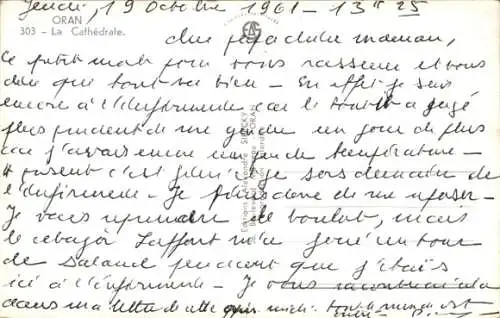 Jeudi, 19 Octobre 1961 - 13 H 25
ORAN
303 - La Cathédrale.
Cher papa chère maman,
Ce petit mot pour vous rassurer et vous
dire que tout va bien - En effet je suis
encore à l'infirmerie car le toubib a jugé
plus prudent de me garder un jour de plus
car j'avais encore un peu de température -
A présent c'est fini je sors demain de
l'infirmerie - Je finis donc de me reposer -
Je vais reprendre le boulot, mais
le Laffont m'a joué un tour
de salaud pendant que j'étais
ici à l'infirmerie - Je vous raconterai cela
dans ma lettre de cette après midi. tout le monde est